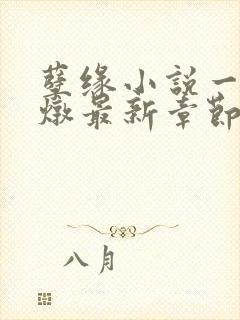 孽缘小说一
燉最新章節
八月